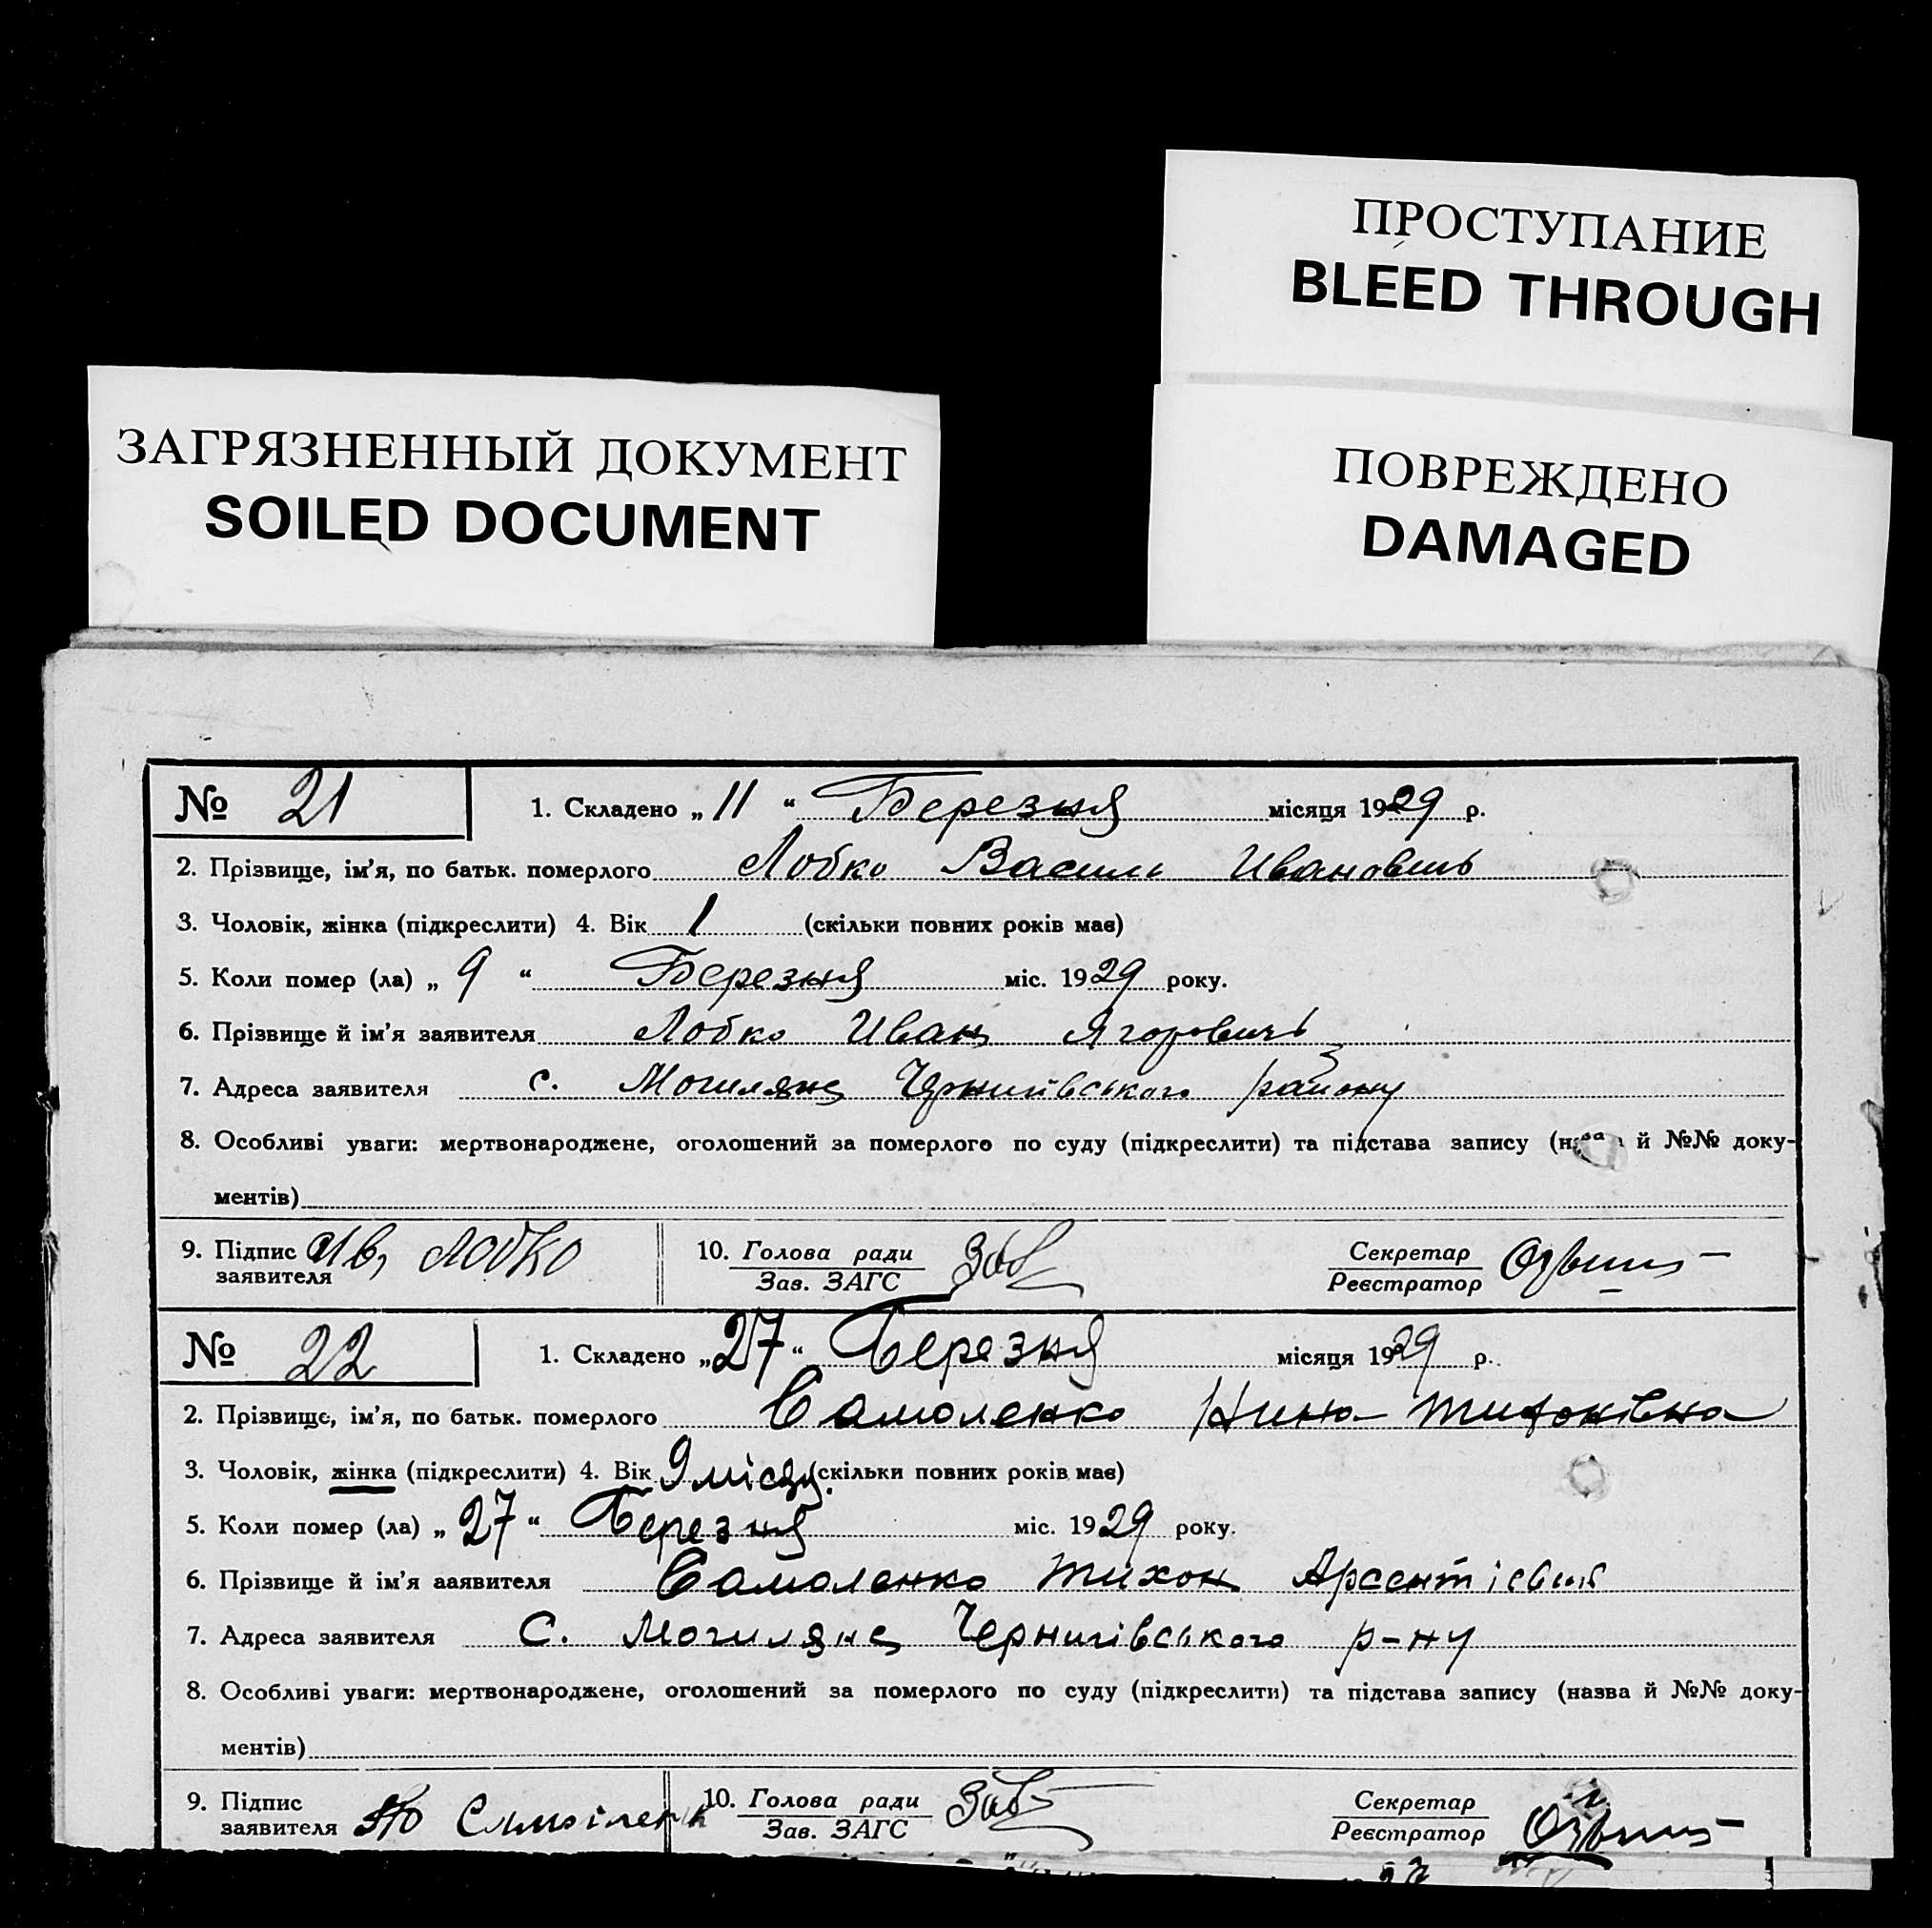 ПРОСТУПАНИЕ
BLEED THROUGH
ЗАГРЯЗНЕННЫЙ ДОКУМЕНТ
SOILED DOCUMENT
ПОВРЕЖДЕНО
DAMAGED
№ 21 1. Складено „ 11 “ Березня місяця 1929 р.
2. Прізвище, ім'я, по батьк. померлого Лобко Василь Ивановичь
3. Чоловік, жінка (підкреслити) 4. Вік 1 (скільки повних років має)
5. Коли помер (ла) „ 9 “ Березня міс. 1929 року.
6. Прізвище й ім'я заявителя Лобко Иван Ягоровичь
7. Адреса заявителя с. Чернигівського району
8. Особливі уваги: мертвонароджене, оголошений за померлого по суду (підкреслити) та підстава запису й №№ доку-
ментів)
9. Підпис Ив, Лобко 10. Голова ради Секретар
заявителя Зав. ЗАГС Реєстратор
№ 22 1. Складено „ 27 “ Березня місяця 1929 р.
2. Прізвище, ім'я, по батьк. померлого Самоленко Нина
3. Чоловік, жінка (підкреслити) 4. Вік 9 місяц. (скільки повних років має)
5. Коли помер (ла) „ 27 “ Березня міс. 1929 року.
6. Прізвище й ім'я ааявителя Самоленко Тихон
7. Адреса заявителя С. Чернигівського р-ну
8. Особливі уваги: мертвонароджене, оголошений за померлого по суду (підкреслити) та підстава запису (назва й №№ доку-
ментів)
9. Підпис 10. Голова ради Секретар
заявителя Зав. ЗАГС Реєстратор